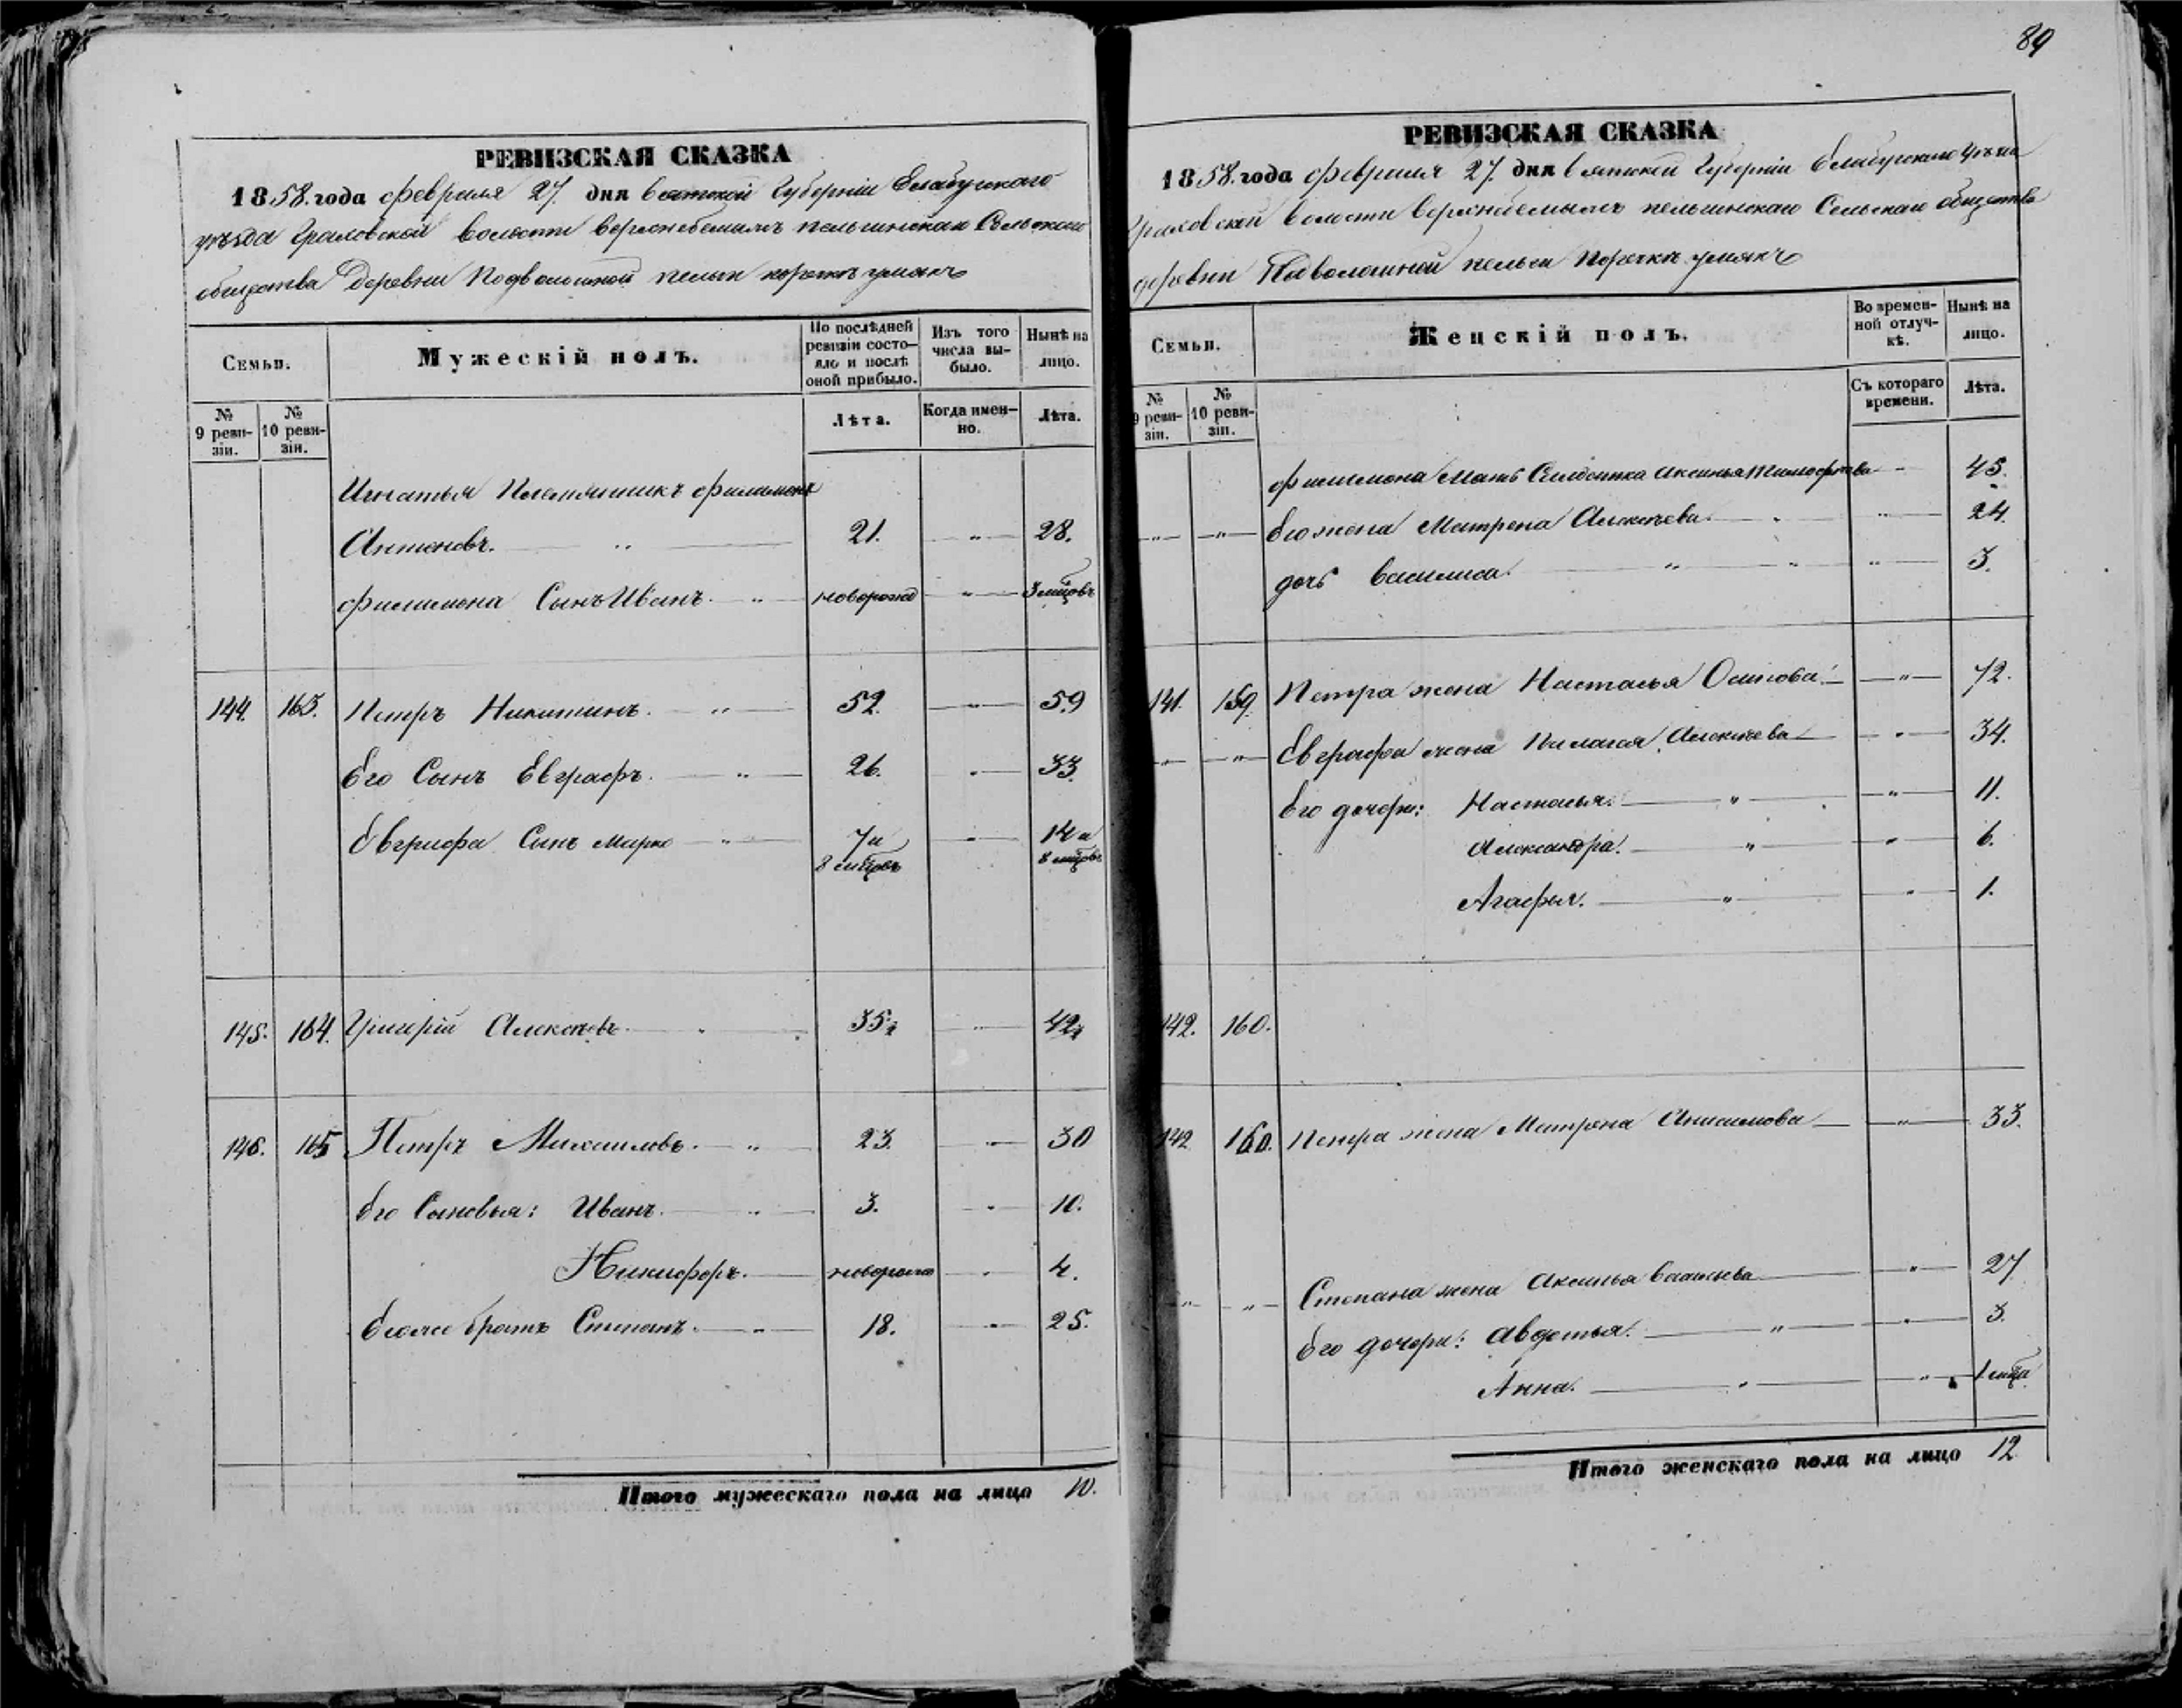 89
РЕВИЗСКАЯ СКАЗКА
1858. года февраля 27. дня Вятской Губерніи Елабужскаго
уѣзда Граховской волости Верхнебемыжъ пельгинскаго Сельскаго
общества Деревни Подволошной пельги
Семьи.
Мужескій полъ.
По послѣдней ревизіи состояло и послѣ оной прибыло.
Изъ того числа выбыло.
Нынѣ на лицо.
№ 9 ревизіи.
№ 10 ревизіи.
Лѣта.
Когда именно.
Лѣта.
Игнатья Племянникъ Филимонъ
Антоновъ. 21. „ 28.
Филимона Сынъ Иванъ. „ новорожд „ 3 мѣцовъ
144. 163. Петръ Никитинъ. „ 52. „ 59
Его Сынъ Евграфъ. „ 26. „ 33.
Евграфа Сынъ Марко „ 7 и 8 мѣцовъ „ 14 и 8 мѣцовъ
145. 164. Григорій Алексѣевъ. „ 35½ „ 42½
146. 165 Петръ Михаиловъ. „ 23. „ 30
Его Сыновья: Иванъ. „ 3. „ 10.
Никифоръ. новорожд „ 4.
Егоже братъ Степанъ. „ 18. „ 25.
Итого мужескаго пола на лицо 10.
РЕВИЗСКАЯ СКАЗКА
1858. года февраля 27. дня Вятской Губерніи Елабужскаго уѣзда
Граховской волости Верхнебемыжъ пельгинскаго Сельскаго общества
деревни Подволошной пельги
Семьи.
Женскій полъ.
Во временной отлучкѣ.
Нынѣ на лицо.
№ 9 ревизіи.
№ 10 ревизіи.
Съ котораго времени.
Лѣта.
Филимона Мать Солдатка Аксинья Тимофѣева „ 45.
„ „ Его жена Матрена Алексѣева. „ 24.
дочь Василиса. „ „ 3.
141. 159. Петра жена Настасья Осипова. „ 72.
„ „ Евграфа жена Пилагея Алексѣева „ 34.
Его дочери: Настасья. „ „ 11.
Александра. „ „ 6.
Агафья. „ „ 1.
142. 160.
142 160. Петра жена Матрена Анисимова „ 33.
„ „ Степана жена Аксинья Васильева „ 27
Его дочери: Авдотья. „ „ 3.
Анна. „ „ 1 мѣца
Итого женскаго пола на лицо 12